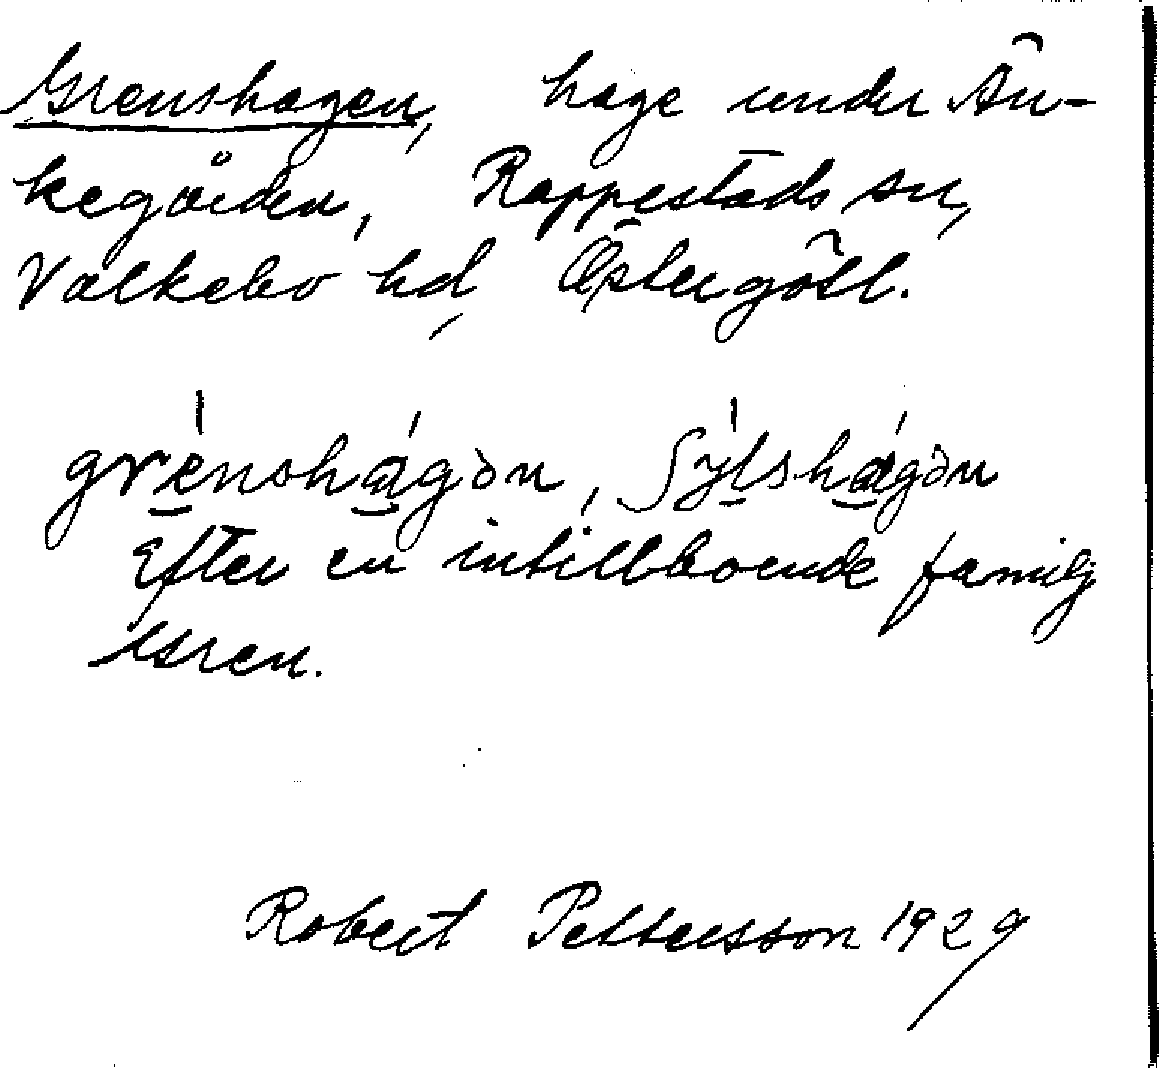 Grenshagen, hage under Än-
kegården, Rappestads sn,
Valkebo hd, Östergötl.
grénshágən, Sýlshágən
Efter en intillboende familj
Gren.
Robert Pettersson 1929